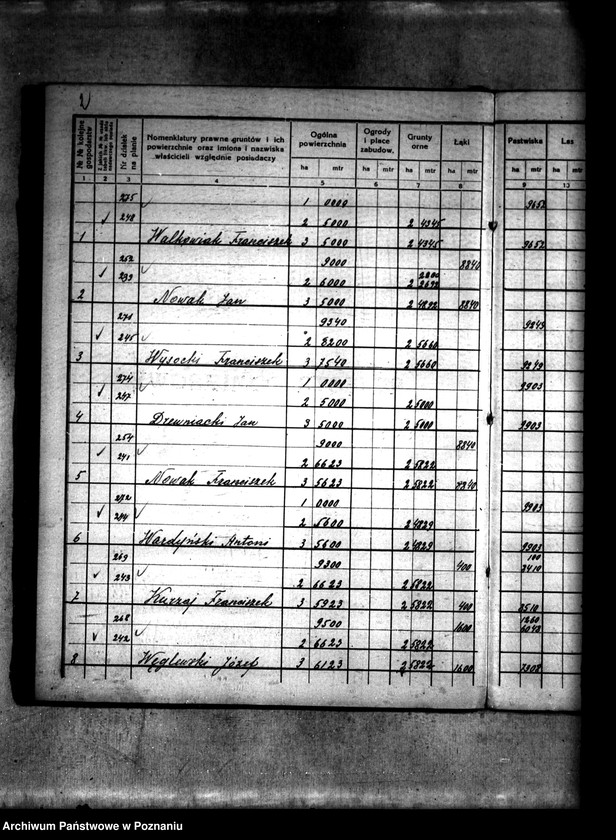 № № kolejne gospodarstw
Nr działek na planie
Nomenklatury prawne gruntów i ich powierzchnie oraz imiona i nazwiska właścicieli względnie posiadaczy
Ogólna powierzchnia
Ogrody i place zabudow.
Grunty orne
Łąki
Pastwiska
Las
ha mtr ha mtr ha mtr ha mtr ha mtr ha
1 3 4 5 6 7 8 9 10
275 1 0000 9652
248 2 5000 2 4345
1 Walkowiak Franciszek 3 5000 2 4345 9652
252 9000 8840
239 2 6000
2 Nowak Jan 3 5000 2 4892 8840
9340
245 2 8200 2 5660
3 Wysocki Franciszek 3 7540 2 5660
274 1 0000 9903
247 2 5000 2 5000
4 Drewniacki Jan 3 5000 2 5000 9903
254 9000 8840
241 2 6623 2 5822
5 Nowak Franciszek 3 5623 2 5822 8840
272 1 0000 9903
2 5600 2 4829
6 Wardyński Antoni 3 5600 2 4829 9903
269 9300 400 100 8410
243 2 6623 2 5822
7 Kurzaj Franciszek 3 5923 2 5822 400 8510
268 9500 1600 1260
242 2 6623 2 5822
8 Węglewski Józef 3 6123 2 5822 1600 7308
Archiwum Państwowe w Poznaniu